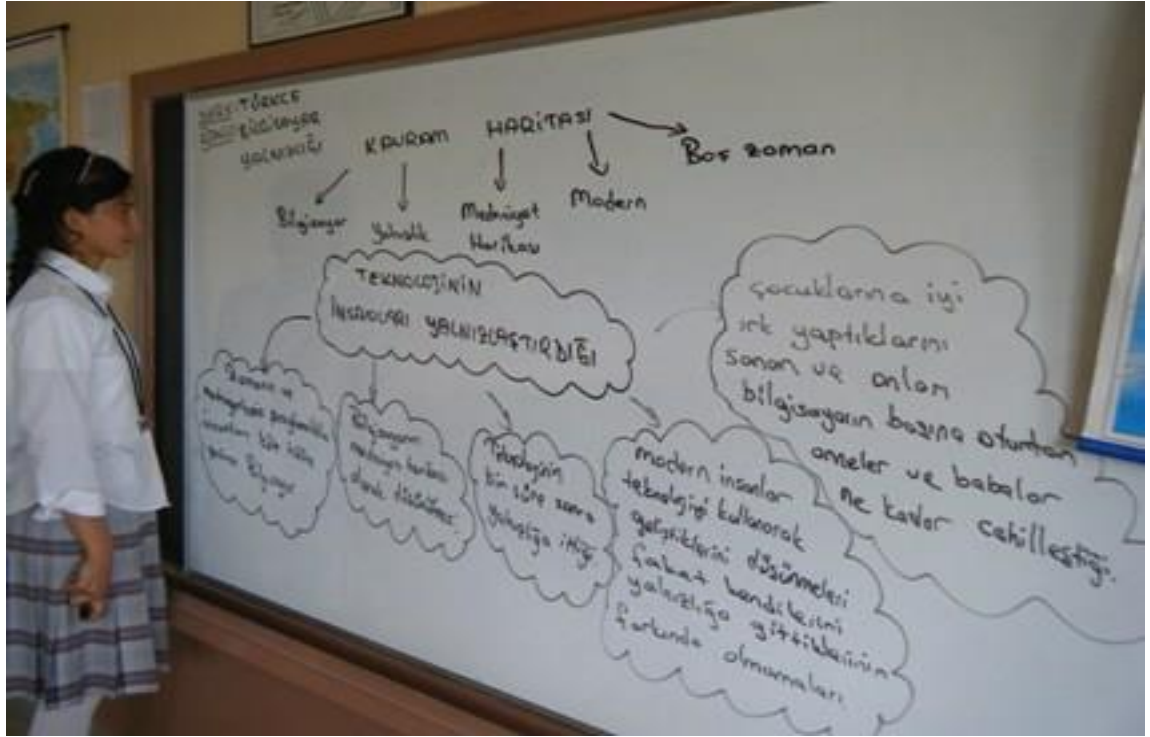 DERS: TÜRKÇE
KONU: BİLGİSAYAR
YALNIZLIĞI
KAVRAM HARİTASI
Bilgisayar
Yalnızlık
Medeniyet
Harikası
Modern
Boş zaman
TEKNOLOJİNİN
İNSANLARI YALNIZLAŞTIRDIĞI
Zamanın ve
insanları bile
Bilgisayar
Bilgisayarın
medeniyet harikası
olarak düşünülmesi
Teknolojinin
bir süre sonra
yalnızlığa ittiği
modern insanlar
teknolojiyi kullanarak
geliştiklerini düşünmeleri
fakat kendilerini
yalnızlığa gittiklerinin
farkında olmamaları
çocuklarına iyi
yaptıklarını
sanan ve onları
bilgisayarın başına oturtan
anneler ve babalar
ne kadar cahilleştiği.